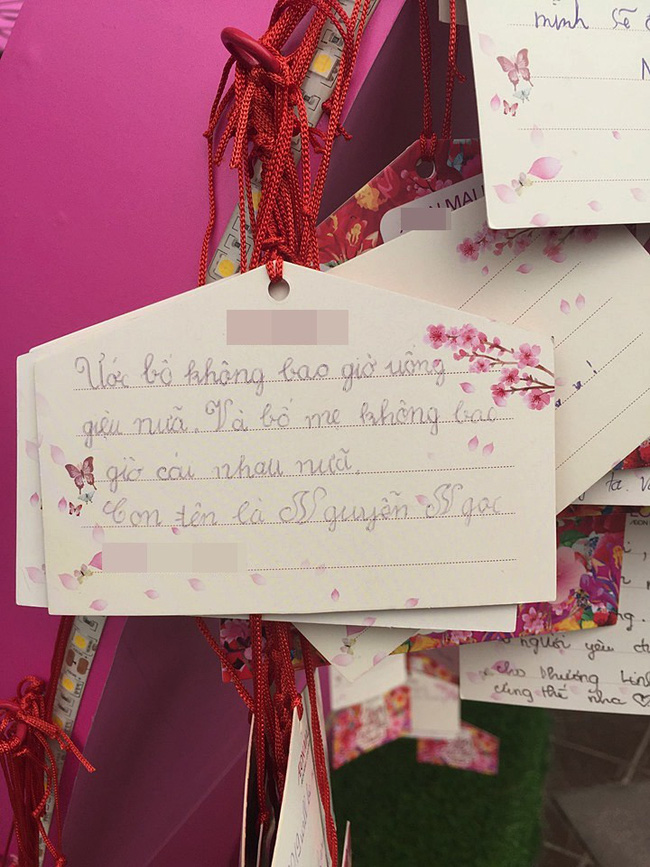 mình sẽ
N MALL
Ước bố không bao giờ uống
giệu nữa. Và bố mẹ không bao
giờ cáu nhau nữa.
Con tên là Nguyễn Ngọc
ta. V
AEON
người yêu
cho Phương Linh
cũng thế nha